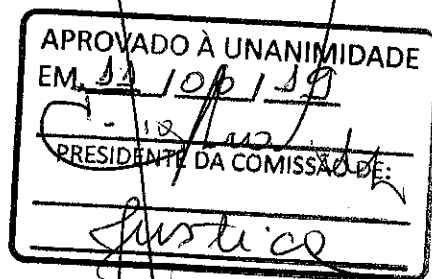 APROVADO À UNANIMIDADE
EM, 11 / 06 / 19
PRESIDENTE DA COMISSÃO DE:
Justiça